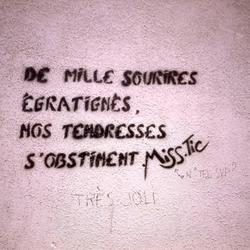 DE MILLE SOURIRES
ÉGRATIGNÉS,
NOS TENDRESSES
S'OBSTINENT. Miss.Tic
TRÈS JOLI